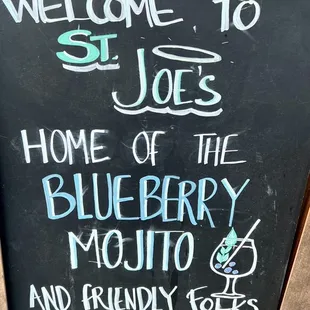 WELCOME TO
ST.
JOE'S
HOME OF THE
BLUEBERRY
MOJITO
AND FRIENDLY FOLKS